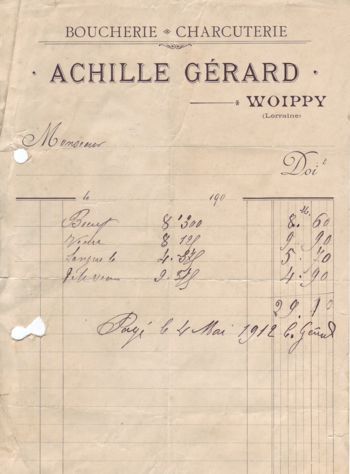 BOUCHERIE CHARCUTERIE
ACHILLE GÉRARD
WOIPPY
(Lorraine)
Monsieur
Doit
le 190
M.
Boeuf 8'300 8. 60
8 125 9. 90
Langue 5. 70
4. 90
29. 10
Payé le 4 Mai 1912